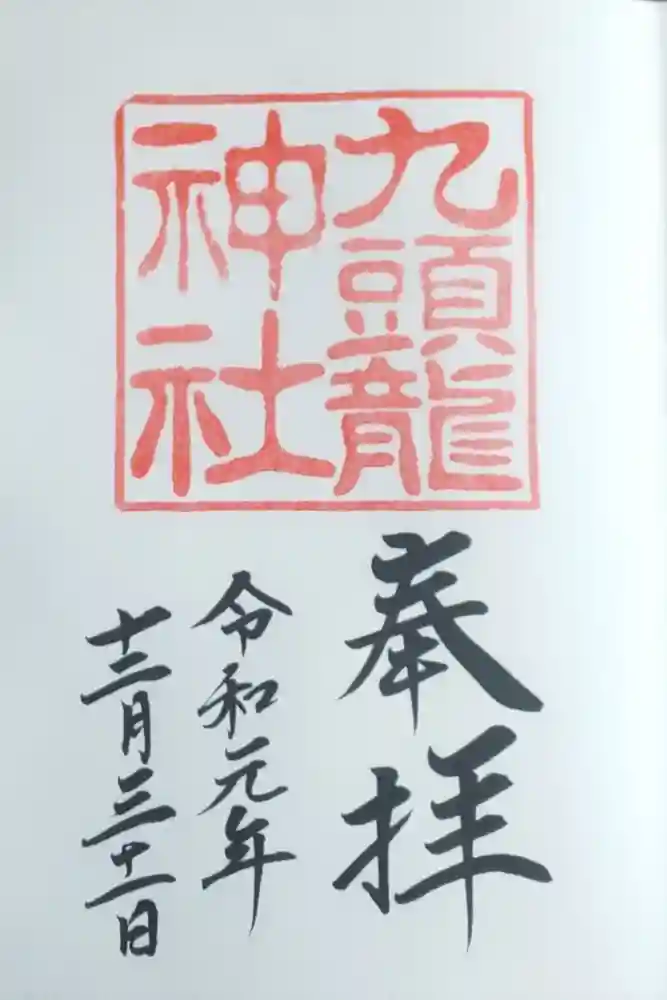 九頭龍
神社
奉拝
令和元年
十二月三十一日